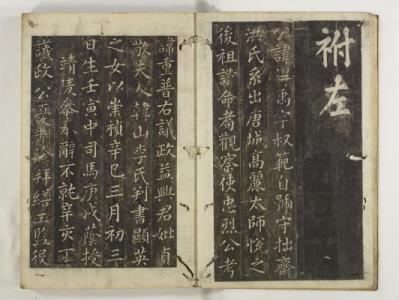 祔左
公諱得禹字叔範自號守拙齋
洪氏系出唐城高麗太師悅之
後祖諱命耈觀察使忠烈公考
諱重普右議政益興君妣貞
敬夫人韓山李氏判書顯英
之女以崇禎辛巳三月初三
日生壬寅中司馬庚戌蔭授
靖陵參奉辭不就辛亥丁
議政公憂拜繕工監役